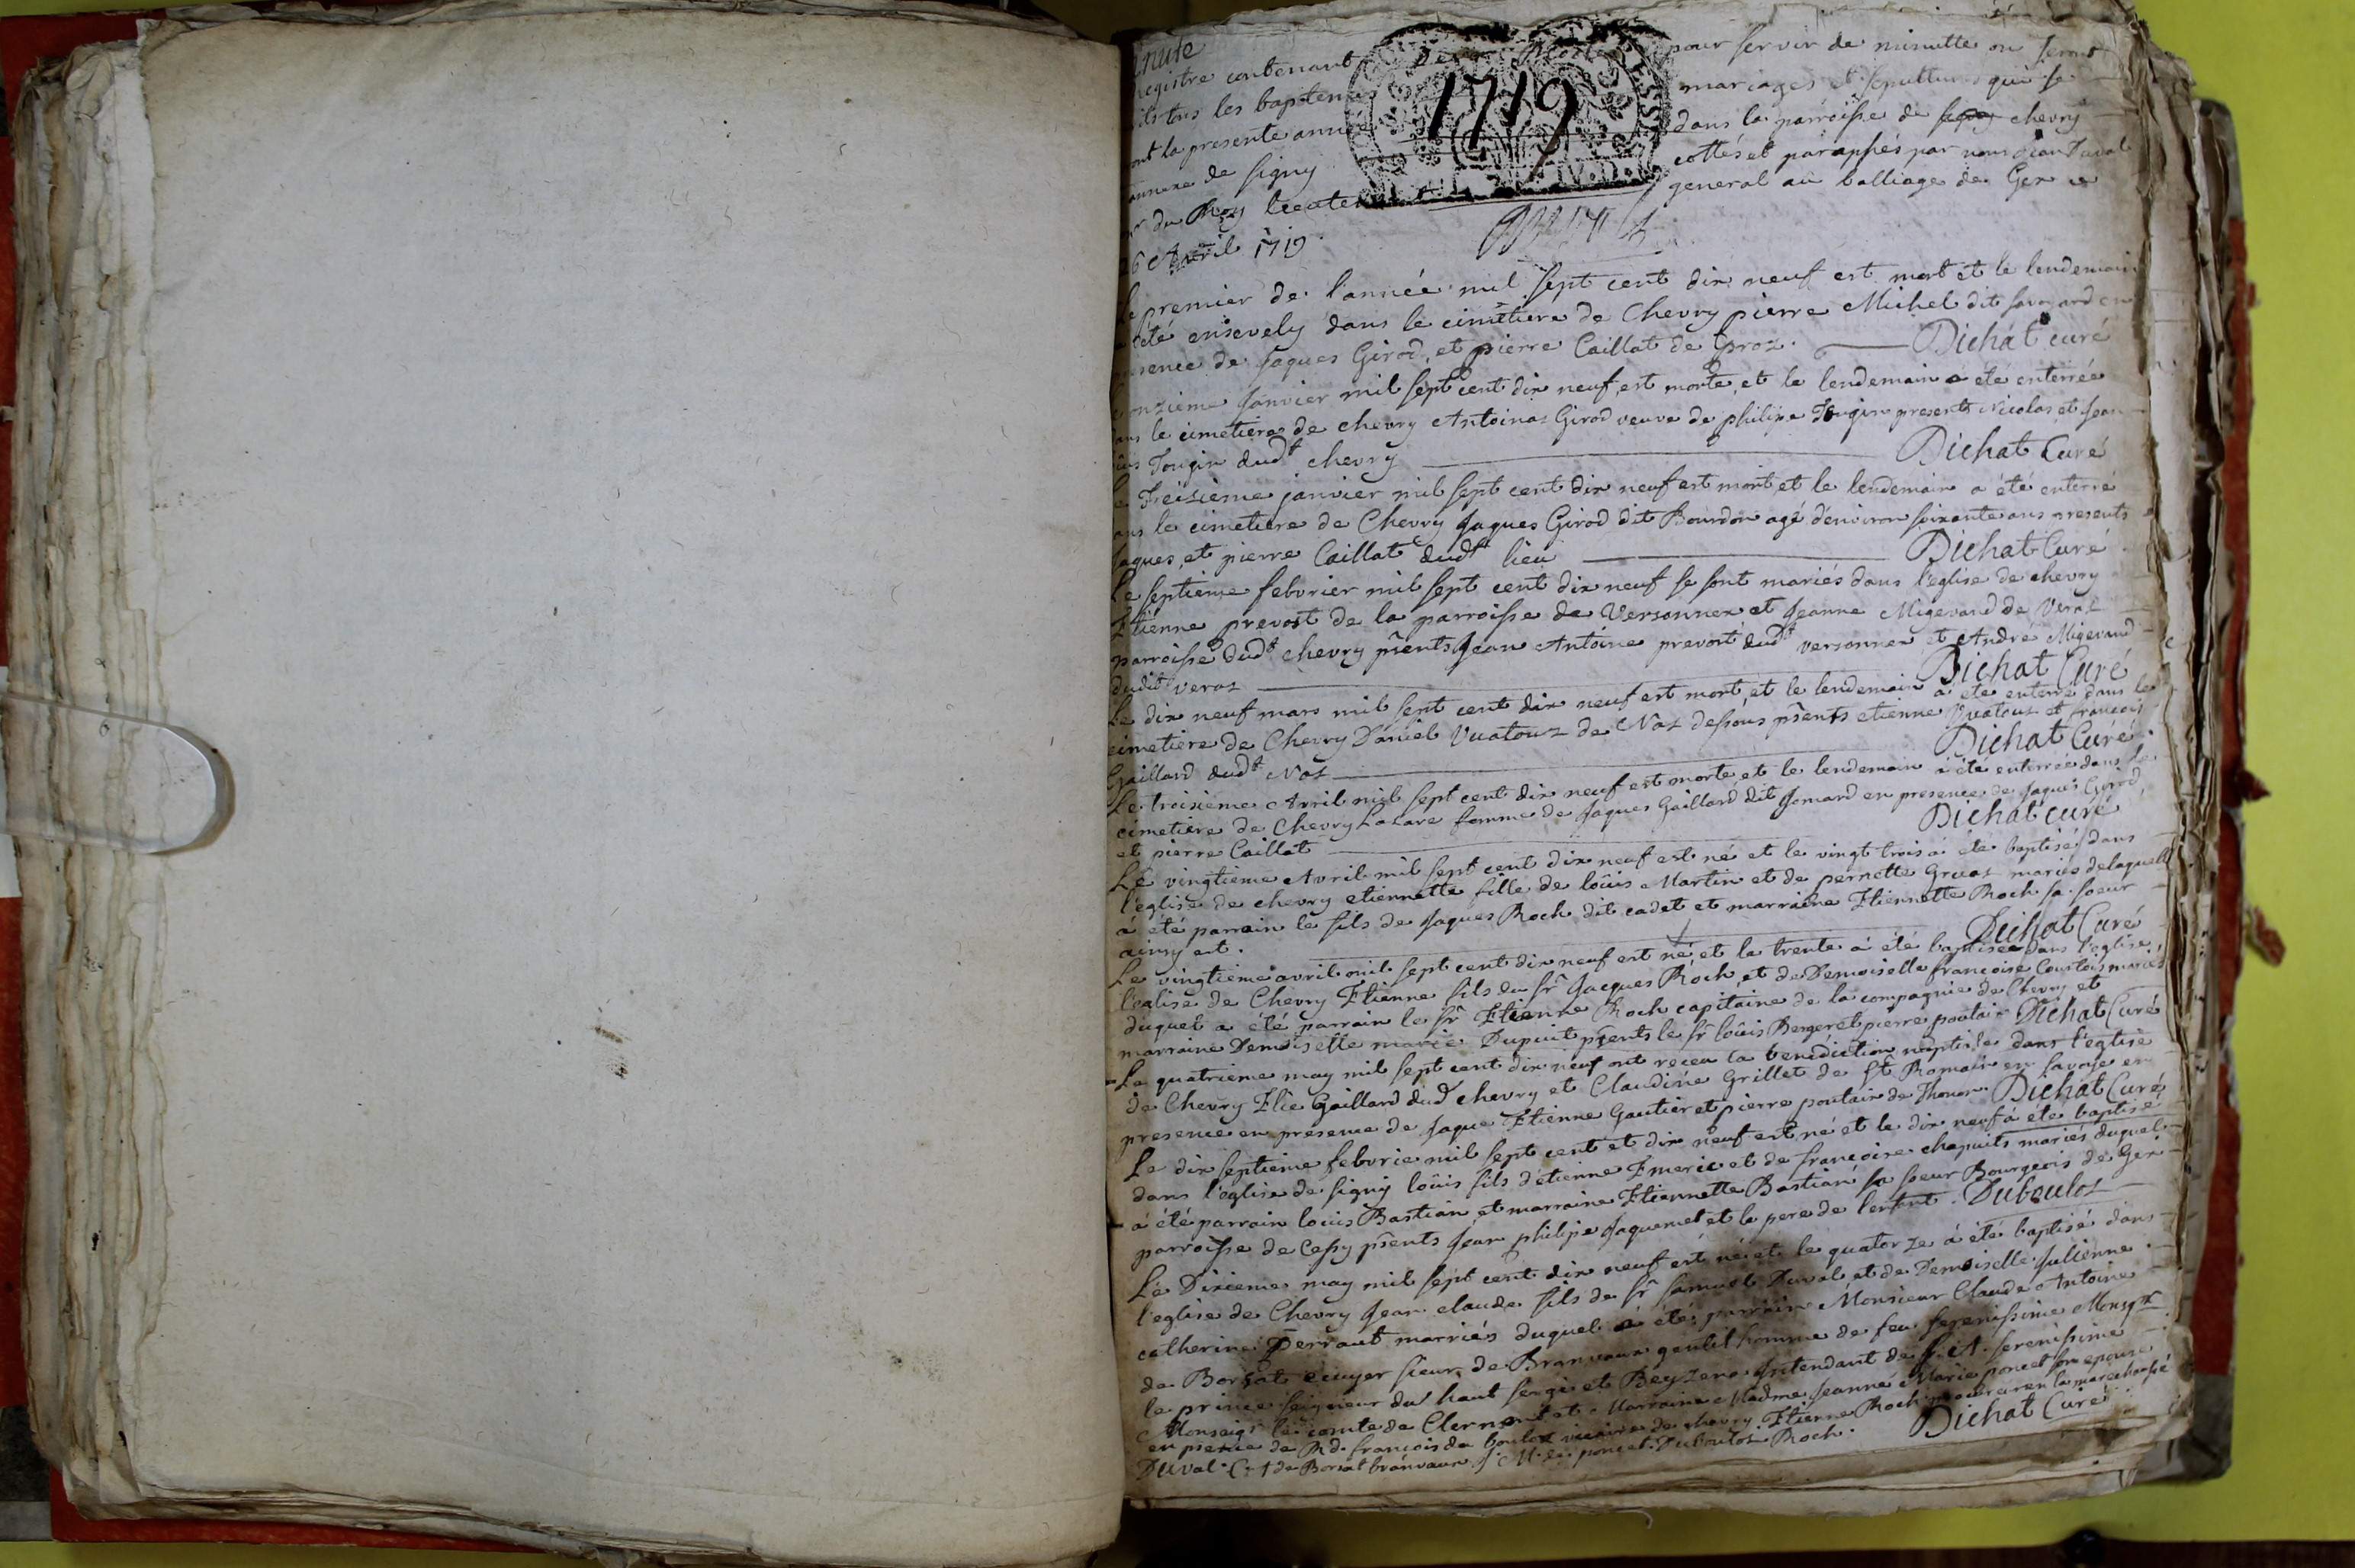 Registre contenant pour servir de minutte ou seront
tous les baptemes mariages et sepultures qui se
la presente anné dans la parroisse de chevry
de signy cottés et paraphés par nous Jean Duval
du Roy lieute general au balliage de Gex
Avril 1719.
1719
Le premier de l'année mil sept cent dix neuf est mort et le lendemain
été ensevely dans le cimetiere de Chevry pierre Michel dit savoyard en
de Jaques Girod, et pierre Caillat de Dichat curé
onzieme Janvier mil sept cent dix neuf est morte, et le lendemain a eté enterrée
le cimetiere de chevry Antoina Girod veuve de philipe Tougin presents Nicolas et Jean
Tougin dudt chevry Dichat Curé
Treisieme janvier mil sept cent dix neuf est mort et le lendemain a été enterré
le cimetiere de Chevry Jaques Girod dit Bourdon agé d'environ soixante ans presents
Jaques, et pierre Caillat dudt lieu Dichat Curé
Le septieme febvrier mil sept cent dix neuf se sont mariés dans l'eglise de chevry
Etienne prevost de la parroisse de Versonnex et Jeanne Migevand de Veraz
parroisse dudt chevry pñents Jean Antoine prevost dudt versonnex et André Migevand
dudit veraz Dichat Curé
Le dix neuf mars mil sept cent dix neuf est mort et le lendemain a été enterré dans le
cimetiere de Chevry Daniel Vuatouz de Naz dessous pñents etienne Vuatouz et francois
Gaillard dudt Naz Dichat Curé
Le troisieme Avril mil sept cent dix neuf est morte et le lendemain a été enterrée dans le
cimetiere de Chevry Lazare femme de Jaques Gaillard dit Jomard en presence de Jaques Girod,
et pierre Caillat Dichat curé
Le vingtieme Avril mil sept cent dix neuf est né et le vingt trois a été baptisé dans
l'eglise de chevry etiennette fille de loüis Martin et de pernette Gruaz mariés de laquell
a été parrain le fils de Jaques Roch dit cadet et marraine Etiennette Roch sa soeur
ainsy est. Dichat Curé
Le vingtieme avril mil sept cent dix neuf est né, et la trente a été baptisée dans l'eglise
l'eglise de Chevry Etienne fils du sr Jacques Roch, et de Demoiselle francoise Courtois mariés
duquel a été parrain le sr Etienne Roch capitaine de la compagnie de Chevry et
marraine Demoiselle marie Dupuit pñents le sr loüis Berger et pierre poutain Dichat Curé
Le quatrieme may mil sept cent dix neuf ont receu la benediction nuptiale dans l'eglise
de Chevry Elie Gaillard dud chevry et Claudine Grillet de St Romain en savoye en
presence en presence de Jaque Etienne Gautier et pierre poutain de Thouar Dichat Curé
Le dix septieme febvrie mil sept cent et dix neuf est né et le dix neuf a été baptisé
dans l'eglise de signy loüis fils d'etienne Emeric et de francoise chapuits mariés duquel
a été parrain loüis Bastian et marraine Etiennette Bastian sa soeur Bourgeois de Gex
parroisse de Cessy pñents Jean philipe Jaquemet et le pere de l'enfant. Dubouloz
Le Dixieme may mil sept cent dix neuf est né et le quatorze a été baptisé dans
l'eglise de Chevry Jean claude fils de sr samuel Duval et de Demoiselle Julienne
catherine Perraut marriés duquel a été parrain Monsieur Claude Antoine
de Borsat ecuyer sieur de Branvaux gentilhomme de feu serenissime Monsgr
le prince seigneur du haut sergi et Intendant de S. A. serenissime
Monseigr le comte de Clermont et Marraine Madme Jeanne Marie poncet son epouse
en presence de Rd. francois de bouloz vicaire de chevry Etienne Roch procureur en la marechaussé
Duval. C. A de Borsat branvaux J. M. poncet. Duboulos Roch. Dichat Curé